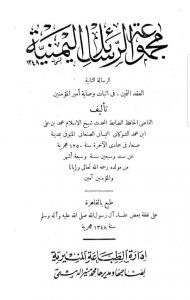 مجموعة الرسائل اليمنية
١٣٤٨
الرسالة الثانية
العقد الثمين، فى اثبات وصاية أمير المؤمنين
تأليف
القاضى الحافظ الضابط المحدث شيخ الاسلام محمد بن على
ابن محمد الشوكانى اليمانى الصنعانى المتوفى بمدينة
صنعاء فى جمادى الآخرة سنة ١٢٥٠ هجرية
عن ست وسبعين سنة وسبعة أشهر
من مولده رحمه الله تعالى وإيانا
والمؤمنين آمين
طبع بالقاهرة
على نفقة بعض علماء آل رسول الله صلى الله عليه وآله وسلم
سنة ١٣٤٨ هجرية
إدارة الطباعة المنيرية
لصاحبها ومديرها محمد منير الدمشقى